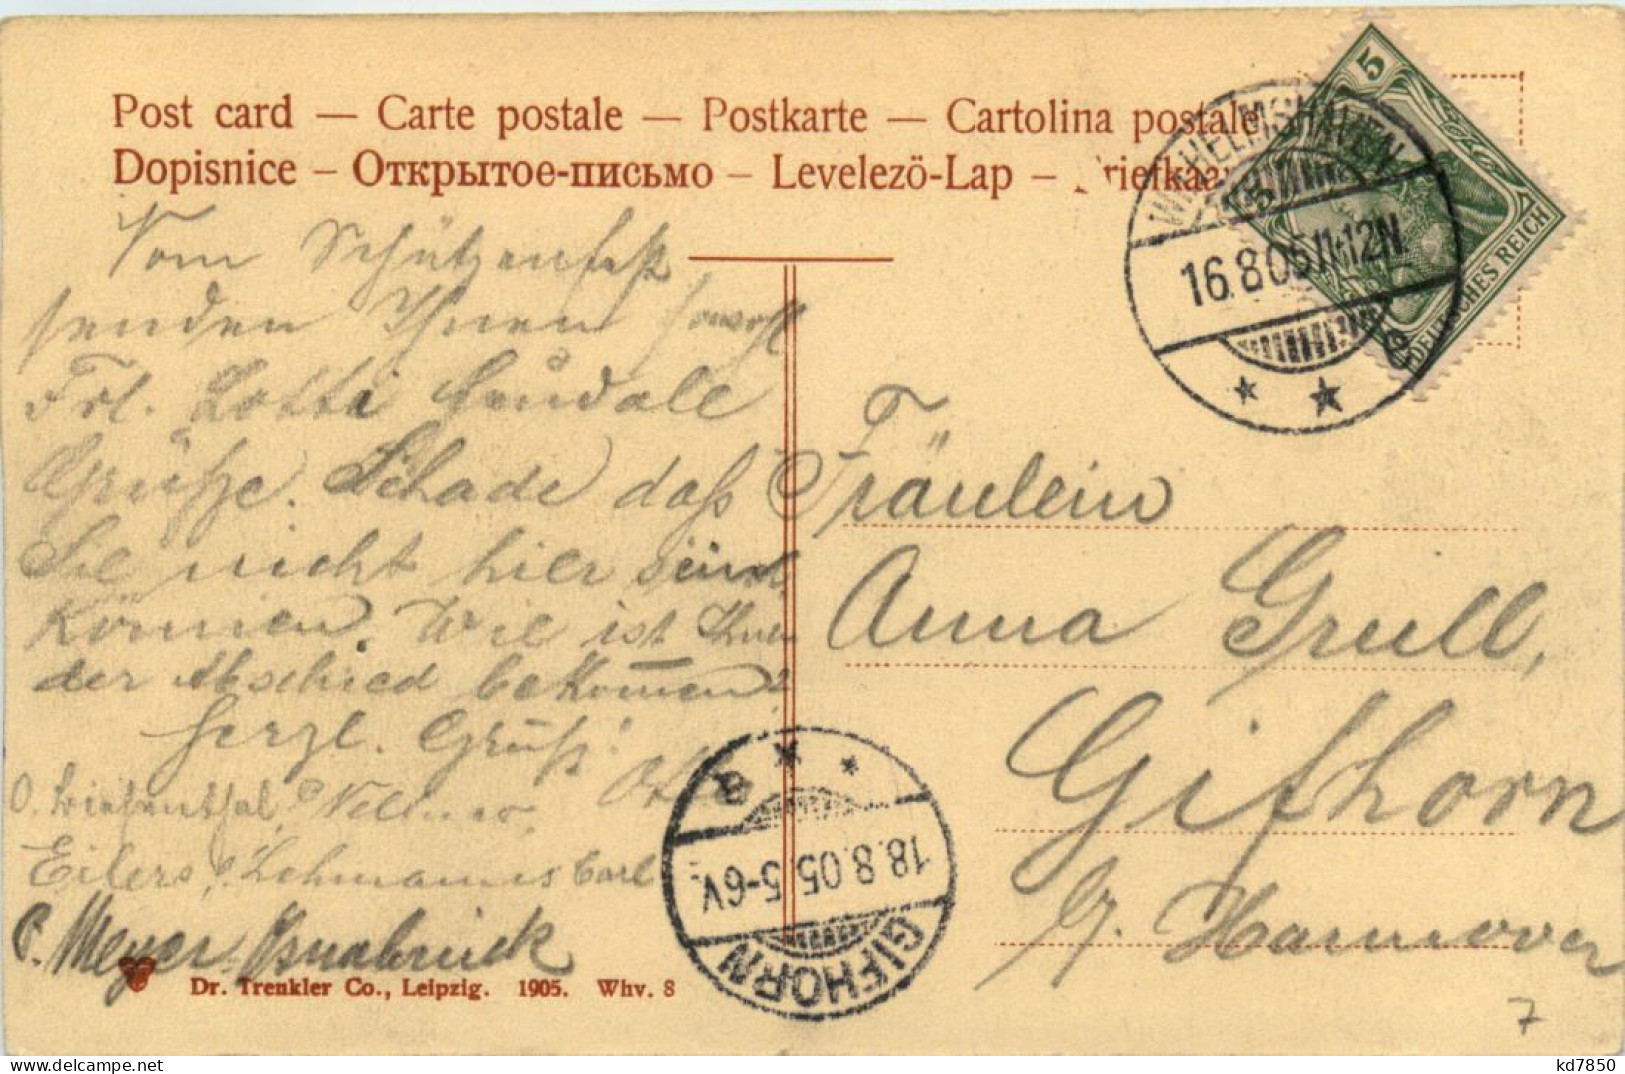 Post card – Carte postale – Postkarte – Cartolina postale
Dopisnice – Открытое-письмо – Levelező-Lap – Briefkaart
Vom Schützenfest
senden Ihnen sowohl
Frl. Lotti
Grüße. Schade daß
Sie nicht hier sein
können. Wie ist Ihnen
der Abschied bekommen?
Herzl. Gruß!
Otto
O. Wiesenthal,
Eilers, Lehmann Carl
C. Meyer. Osnabrück
Dr. Trenkler Co., Leipzig. 1905. Whv. 8
WILHELMSHAVEN
16.8.05.11-12N.
5
DEUTSCHES REICH
Fräulein
Anna Grull,
Gifhorn
Hannover
18.8.05.5-6V.
GIFHORN
7
kd7850